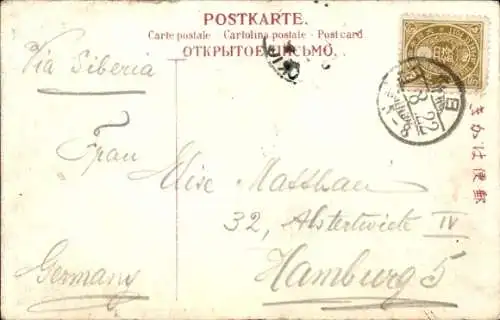 POSTKARTE.
Carte postale - Cartolina postale - Postcard
ОТКРЫТОЕ ПИСЬМО.
Via Siberia
Frau
Mise Matthaei
32, Alstertwiete IV
Hamburg 5
Germany
きかは便郵
8 22
5-8